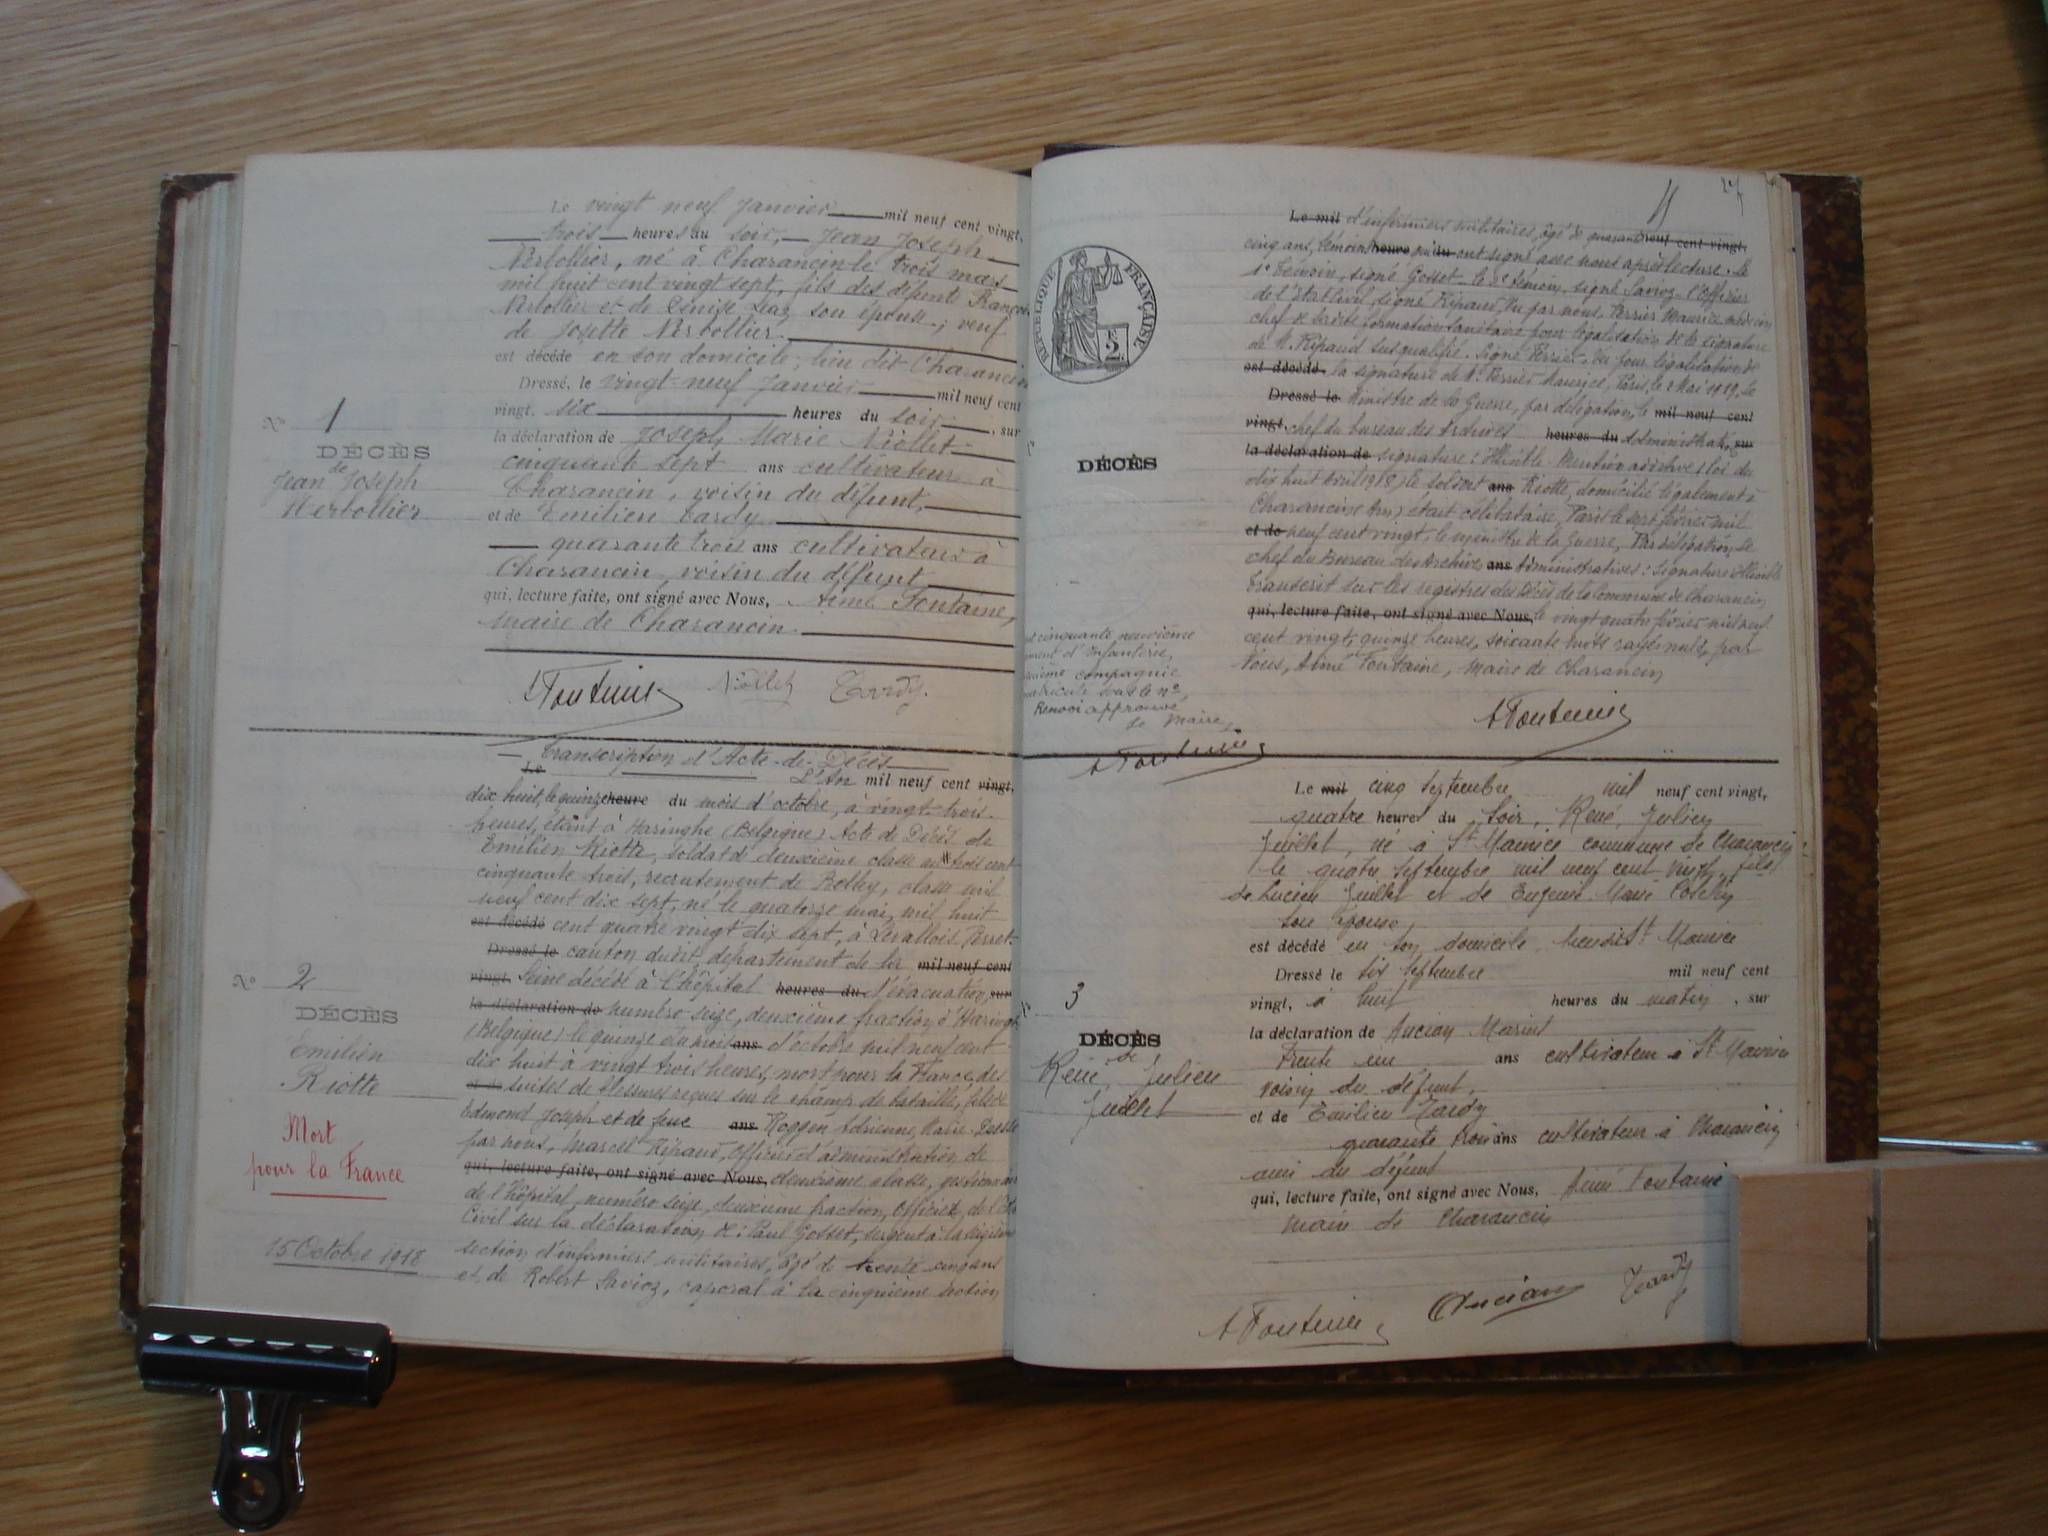 Le vingt neuf Janvier mil neuf cent vingt,
trois heures du soir, Jean Joseph
Nerbollier, né à Charancin le trois mars
mil huit cent vingt sept, fils des défunts François
Nerbollier et de Denise son épouse; veuf
de Josette Nerbollier.
est décédé en son domicile; lieu dit Charancin
Dressé, le vingt-neuf Janvier mil neuf cent
vingt, six heures du soir, sur
la déclaration de Joseph Marie Niollet
cinquante sept ans cultivateur à
Charancin, voisin du défunt,
et de Emilien Tardy
quarante trois ans cultivateur à
Charancin, voisin du défunt
qui, lecture faite, ont signé avec Nous, Aimé Fontaine,
Maire de Charancin.
N° 1
DÉCÈS
de
Jean Joseph
Nerbollier
A Fontaine Niollet Tardy
Transcription d'Acte de Décès
Le L'An mil neuf cent vingt,
dix huit, le quinze heure du mois d'octobre, à vingt-trois
heures, étant à Haringhe (Belgique) Acte de Décès de
Emilien Riotte, soldat de deuxième classe au trois cent
cinquante trois, recrutement de Belley, classe mil
neuf cent dix sept, né le quatorze mai, mil huit
est décédé cent quatre vingt dix sept, à Levallois Perret
Dressé le canton dudit, département de la mil neuf cent
vingt, Seine décédé à l'hôpital heures du d'évacuation, sur
la déclaration de numéro seize, deuxième fraction d'Haringhe
(Belgique) le quinze du mois ans d'octobre mil neuf cent
dix huit à vingt trois heures, mort pour la France, des
et de suites de blessures reçues sur le champ de bataille, fils de
Edmond Joseph et de feue ans Hoggen Adrienne, Marie. Dressé
par nous, Marcel Ripaud, Officier d'administration de
qui, lecture faite, ont signé avec Nous, deuxième classe, gestionnaire
de l'hôpital numéro seize, deuxième fraction, Officier de l'Etat
Civil sur la déclaration de: Paul Gosset, sergent à la
section d'infirmiers militaires, âgé de trente cinq ans
et de Robert Savioz, caporal à la cinquième section
N° 2
DÉCÈS
Emilien
Riotte
Mort
pour la France
15 Octobre 1918
Le mil d'infirmiers militaires, âgé de quarante neuf cent vingt,
cinq ans, témoins heure qui du ont signé avec nous après lecture. le
1e témoin, signé Gosset. le 2e témoin, signé Savioz. l'Officier
de l'état civil, signé Ripaud, Vu par nous, Perrier Maurice médecin
chef de ladite formation sanitaire pour légalisation de la signature
de M. Ripaud susqualifié. Signé Perrier. Vu pour légalisation de
est décédé, la signature de M. Perrier Maurice, Paris, le 2 Mai 1919, le
Dressé le Ministre de la Guerre, par délégation, le mil neuf cent
vingt, chef du bureau des Archives heures du Administratives sur
la déclaration de signature: Mention additive (loi du
dix huit Avril 1918) le soldat ans Riotte, domicilié légalement à
Charancin (Ain) était célibataire, Paris le sept février mil
et de neuf cent vingt, le ministre de la Guerre, Par délégation, le
chef du Bureau des Archives ans Administratives: signature
transcrit sur les registres des Décès de la Commune de Charancin
qui, lecture faite, ont signé avec Nous, le vingt quatre février mil neuf
cent vingt, quinze heures, soixante mots rayés nuls, par
Nous, Aimé Fontaine, Maire de Charancin
A Fontaine
RÉPUBLIQUE FRANÇAISE
2
DÉCÈS
cinquante neuvième
d'Infanterie,
compagnie
sous le n°,
Renvoi approuvé
Le Maire,
A Fontaine
Le mil cinq septembre mil neuf cent vingt,
quatre heures du soir, René, Julien
Juillet, né à St Maurice commune de Charancin
le quatre septembre mil neuf cent vingt, fils
de Lucien Juillet et de Eugénie Marie
son épouse,
est décédé en son domicile lieu dit St Maurice
Dressé le six septembre mil neuf cent
vingt, à huit heures du matin, sur
la déclaration de Ancian Marius
trente un ans cultivateur à St Maurice
voisin du défunt,
et de Emilien Tardy
quarante trois ans cultivateur à Charancin
ami du défunt
qui, lecture faite, ont signé avec Nous, Aimé Fontaine
Maire de Charancin
N° 3
DÉCÈS
de
René, Julien
Juillet
A Fontaine Ancian Tardy